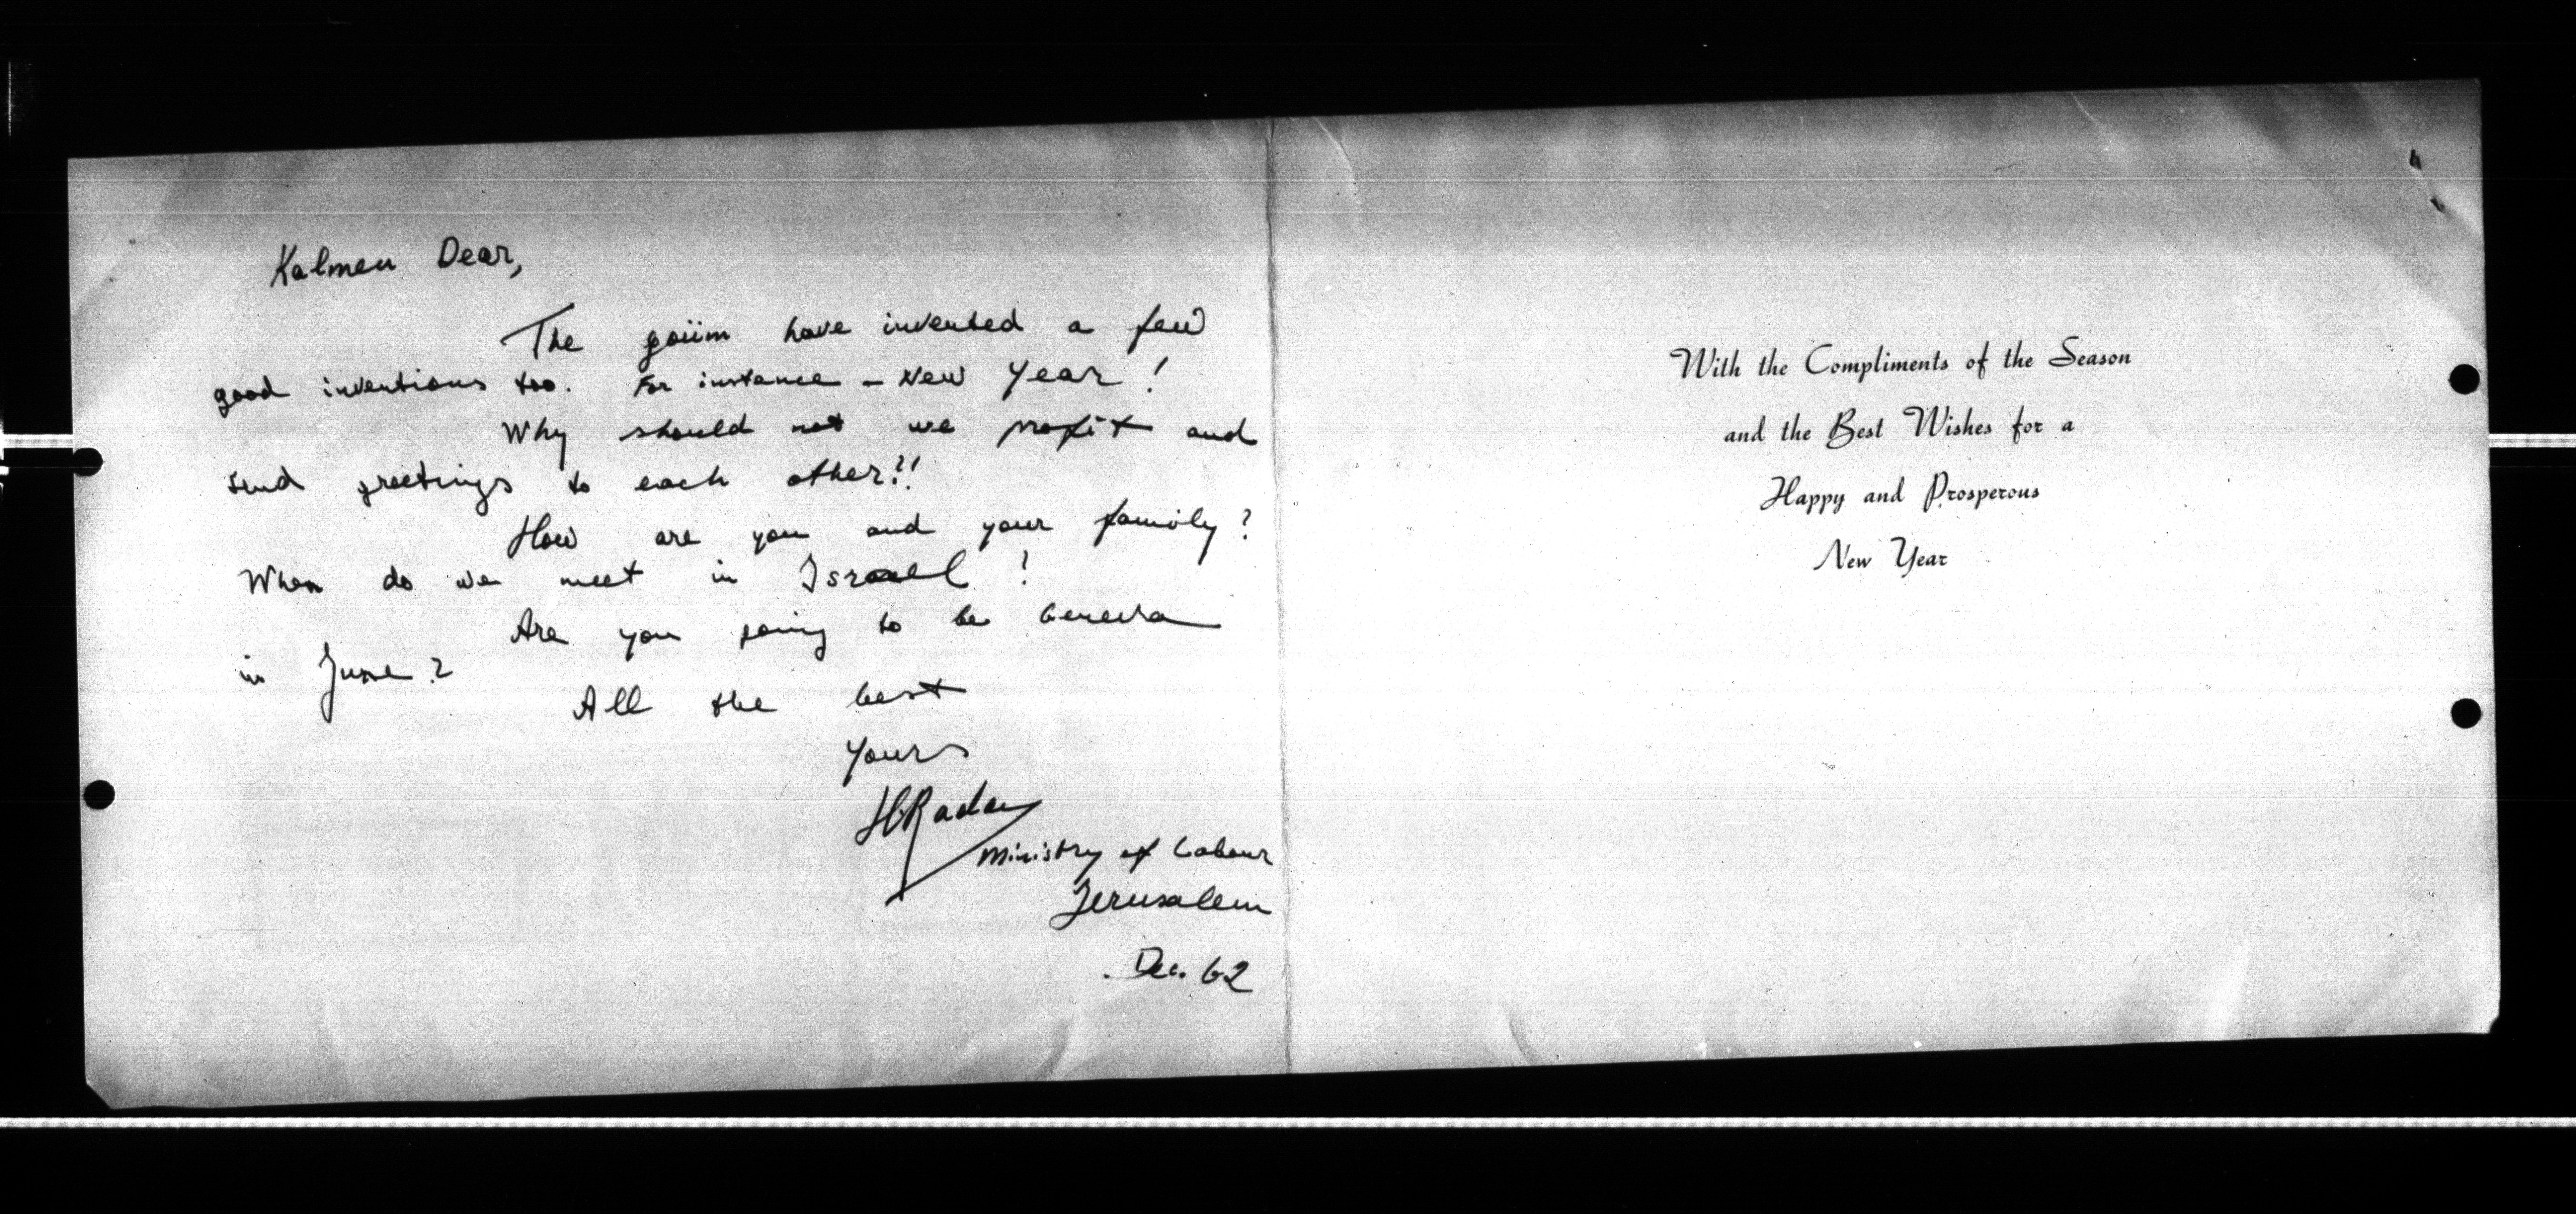 Kalmen Dear,
The goiim have invented a few
good inventions too. For instance - New Year!
Why should not we profit and
send greetings to each other?!
How are you and your family?
When do we meet in Israel!
Are you going to be Geneva
in June?
All the best
Yours
Ministry of Labour
Jerusalem
Dec. 62
With the Compliments of the Season
and the Best Wishes for a
Happy and Prosperous
New Year